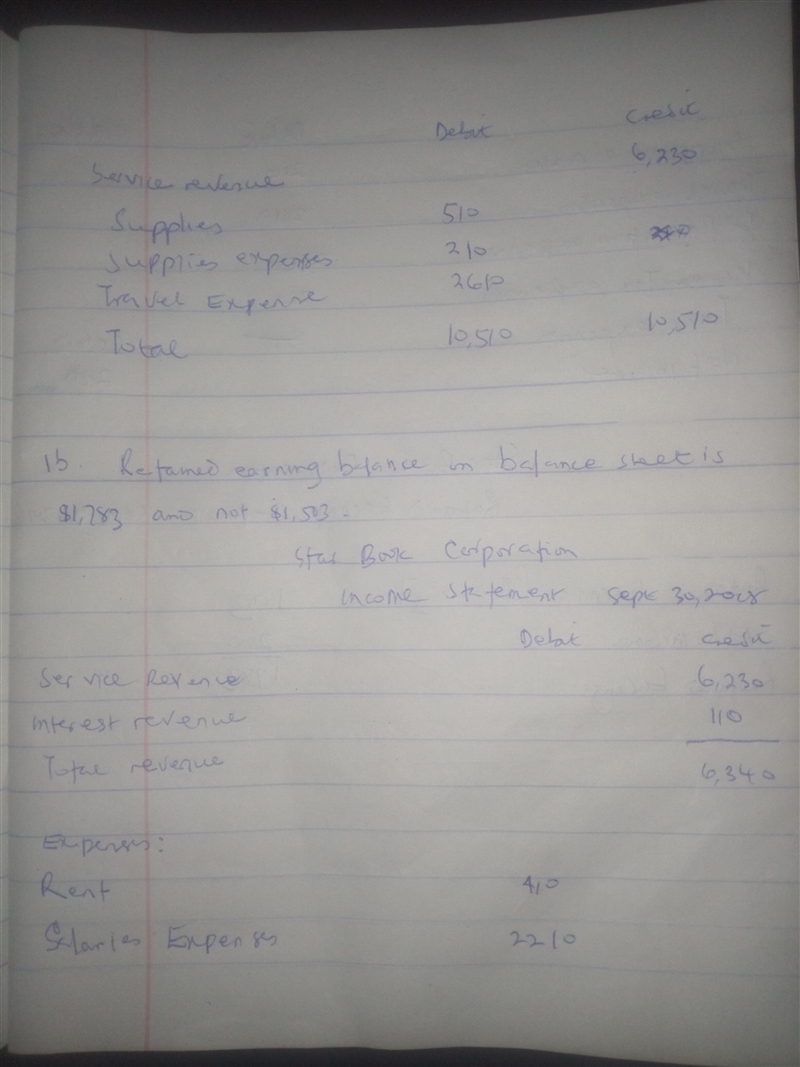 Debit Credit
Service revenue 6,230
Supplies 510
Supplies expenses 210
Travel Expense 2610
Total 10,510 10,510
1b. Retained earning balance in balance sheet is
$1,783 and not $1,503.
Star Book Corporation
Income Statement Sept 30, 2018
Debit Credit
Service Revenue 6,230
Interest revenue 110
Total revenue 6,340
Expenses:
Rent 410
Salaries Expenses 2210